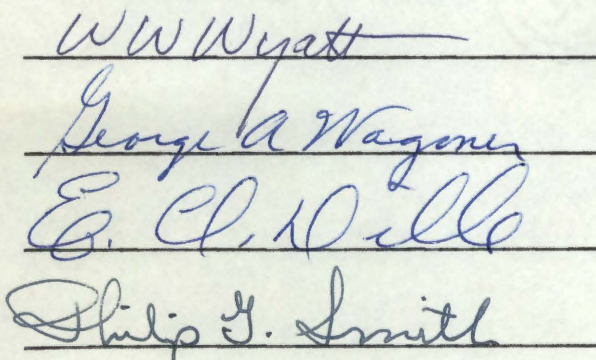 W W Wyatt
George A Wagoner
E. A. Dille
Philip G. Smith